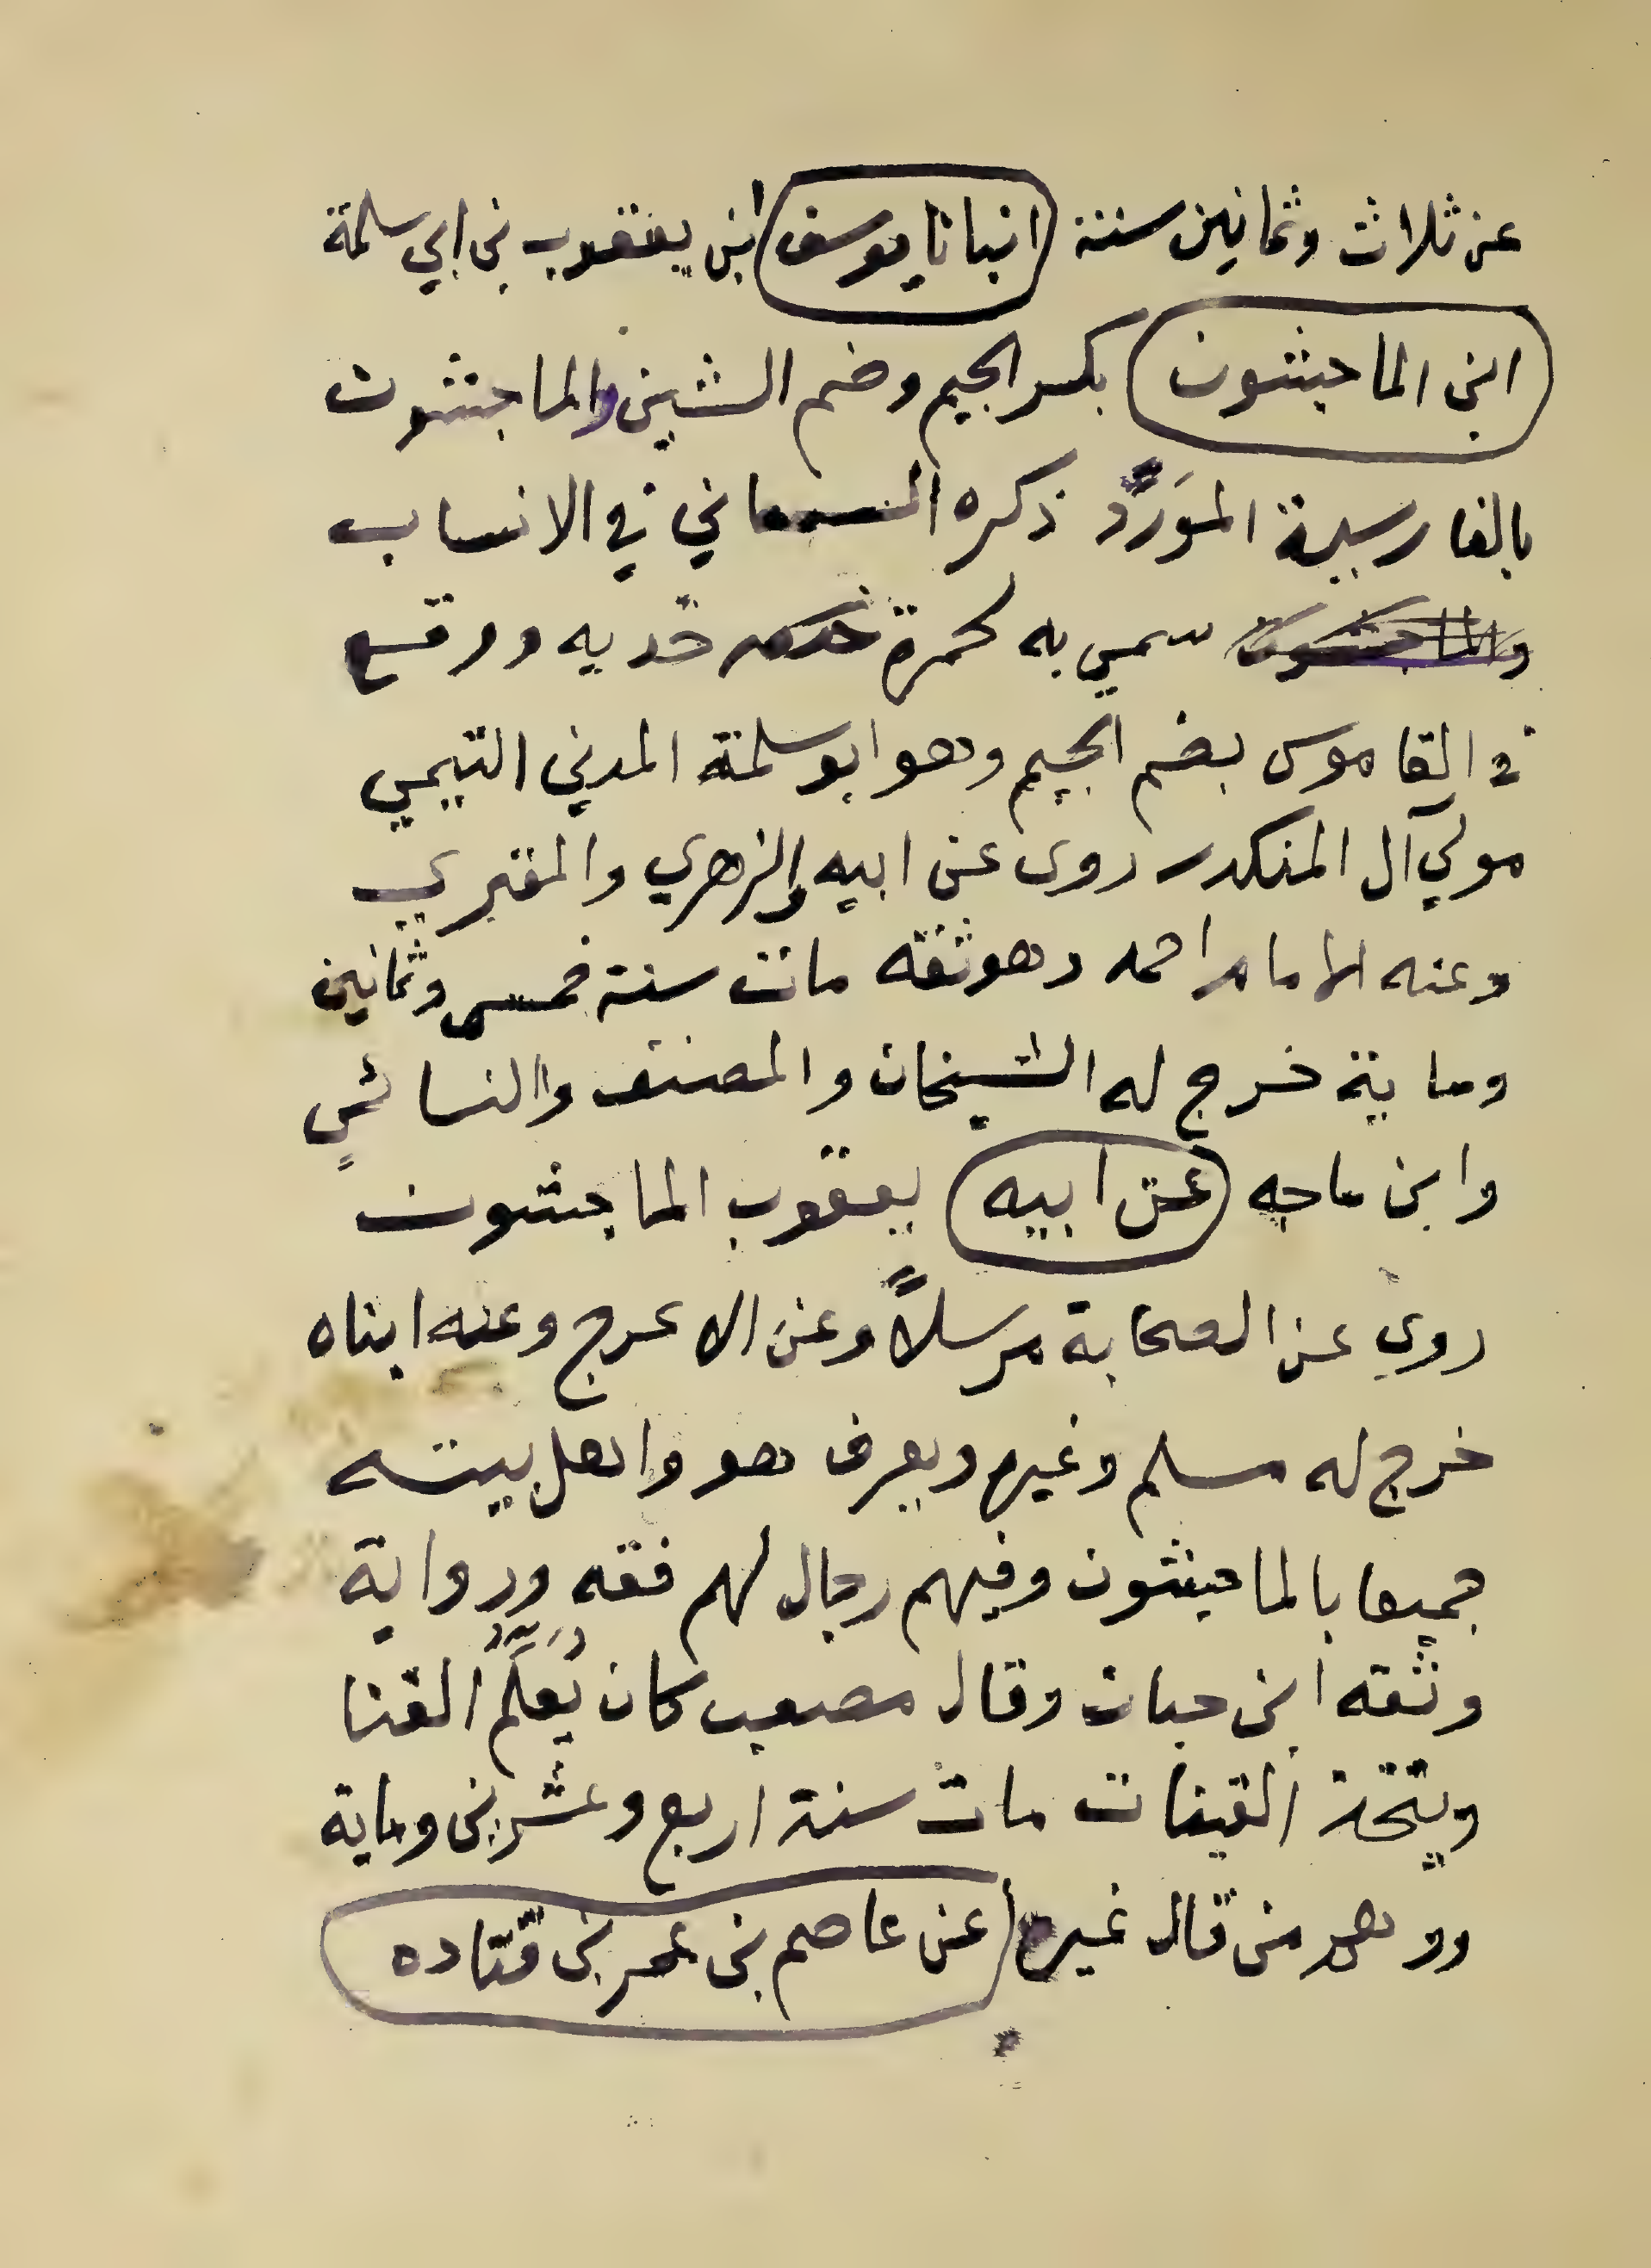 عن ثلاث وثمانين سنة (انبانا يوسف) ابن يعقوب بن ابي سلمة
(ابن الماجشون) بكسر الجيم وضم الشين والماجشون
بالفارسية المَوَرَّد ذكره السمعاني في الانساب
سمي به لحمرة خديه ووقع
في القاموس بضم الجيم وهو ابو سلمة المدني التيمي
مولي آل المنكدر روى عن ابيه والزهري والمقبري
وعنه الامام احمد وهو ثقه مات سنة خمس وثمانين
وماية خرج له الشيخان والمصنف والنسائي
وابن ماجه (عن ابيه) يعقوب الماجشون
روي عن الصحابة مرسلاً وعن الاعرج وعنه ابناه
خرج له مسلم وغيره ويعرف هو واهل بيته
جميعا بالماجشون وفيهم رجال لهم فقه ورواية
وثقه ابن حبان وقال مصعب كان يُعَلِّمُ الغنا
ويتخذ القينات مات سنة اربع وعشرين وماية
ووهم من قال غيره (عن عاصم بن عمر بن قتاده)